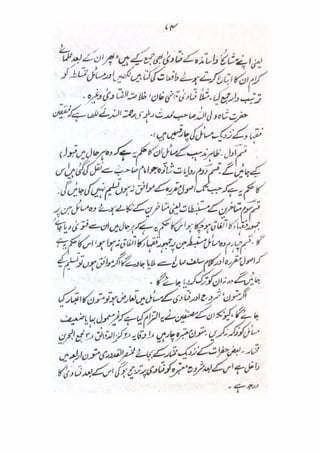 ۷۴
یعنی اپنے مشائخ و اساتذہ کے فتاویٰ بھی جمع کیے ہیں، پھر ان کے بعد علمائے
کرام ان کا اتباع کرتے ہوئے واقعات کی کتابیں لکھیں اور مسائل کو
ترتیب وار جمع کیا، مثلاً فتاویٰ قاضی خان، خلاصۃ الفتاویٰ وغیرہ۔
حضرت شاہ ولی اللہ صاحب محدث دہلوی رحمۃ اللہ نے لکھا ہے کہ محققین
فقہاء کے نزدیک مسائل کی چار قسمیں ہیں:۔
قسم اول۔ ظاہر مذہب کے مسائل ان کا حکم یہ ہے کہ وہ ہر حال میں قبول
کیے جائیں گے۔ قسم دوم روایات شاذہ جو امام صاحب سے نقل کی گئی ہیں اس
کا حکم یہ ہے کہ جب تک اصول مقررہ کے موافق نہ ہوں تسلیم نہیں کی جائیں گی۔
قسم سوم متاخرین کے مستنبطات یعنی متاخرین کے نکالے ہوئے وہ مسائل جن پر
جمہور فقہاء کا اتفاق ہو چکا ہو اس کا حکم یہ ہے کہ ہر حال میں ان سے فتویٰ دیا جائے
گا۔ قسم چہارم وہ مسائل مستنبطہ جن پر جمہور فقہاء کا اتفاق نہ ہوا ہو اس کا حکم یہ ہے
کہ اصول مقررہ اور کلام سلف صالح سے ملایا جائے گا اگر موافق ہوں تو تسلیم کیے
جائیں گے ورنہ ان کو ترک کر دیا جائے گا۔
اگر متون، شروح اور فتاویٰ کے مسائل میں تعارض ہو تو متون کا اعتبار کیا
جائے گا، کیونکہ ان کے مصنفین نے یہ التزام کیا ہے کہ غیر معمول بہا یا ضعیف
مسائل کو ذکر نہ کریں۔ متون معتبرہ چار ہیں (۱) وقایہ (۲) کنز الدقائق (۳) مجمع البحرین
(۴) مختار۔ بعض حضرات کے نزدیک مختار کے بجائے مختصر القدوری متون اربعہ میں
داخل ہے اس کے بعد شروح معتبرہ کو فتاویٰ پر ترجیح ہوگی اس کے بعد فتاویٰ کا
درجہ ہے۔